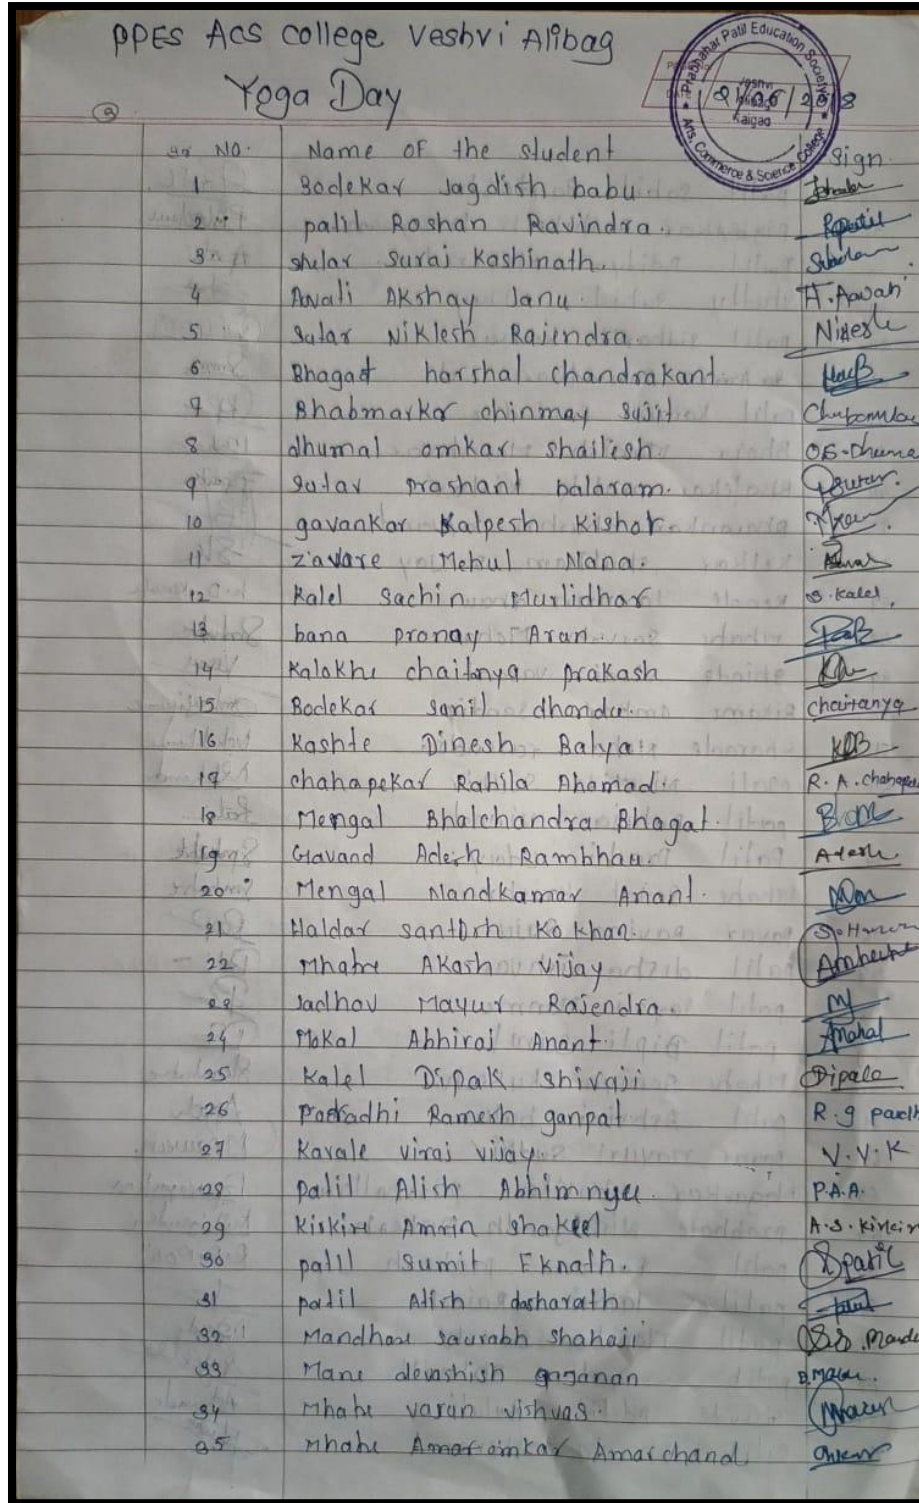 PPES ACS College Veshvi Alibag
Prabhakar Patil Education Society's
Arts, Commerce & Science College
Yoga Day 21/06/2018
Sr NO. Name OF the student Sign.
1 Bodekar Jagdish babu
2 patil Roshan Ravindra. Rpatil
3 shelar Suraj Kashinath.
4 Avali Akshay Janu. A. Aavali
5 Sutar Niklesh Rajendra.
6 Bhagat harshal chandrakant
7 Bhabmarkar chinmay sujit
8 dhumal omkar shailesh
9 Sutar prashant balaram.
10 gavankar Kalpesh Kishor
11 zavare Mehul Nana.
12 Kalel Sachin Murlidhar S. Kalel.
13 bana pronay Arun.
14 Kalokhe chaitanya prakash
15 Bodekar sanil dhondu. chaitanya
16 Kashte Dinesh Balya KDB
17 chahapekar Rahila Ahamad. R. A. chahapekar
18 Mengal Bhalchandra Bhagat.
19 Gavand Adesh Rambhau Adesh
20 Mengal Nandkumar Anant.
21 Haldar santosh Kokhan.
22 Mhatre Akash Vijay
23 Jadhav Mayur Rajendra. MJ
24 Mokal Abhiraj Anant
25 Kalel Dipak shivaji
26 Ramesh ganpat R. g
27 Kavale viraj vijay. V. V. K
28 Patil Alish Abhimnyu. P.A.A.
29 Kiskire Amrin shakeel A. S.
30 patil Sumit Eknath. Spatil
31 patil Atish dasharath
32 Mandhare saurabh shahaji
33 Mane devashish gajanan
34 Mhatre varun vishvas.
35 Mhatre Amaromkar Amarchand